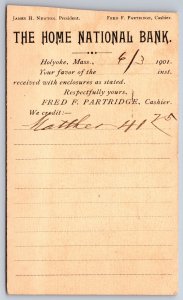 James H. Newton, President. Fred F. Partridge, Cashier.
THE HOME NATIONAL BANK.
Holyoke, Mass., 6/3 1901.
Your favor of the inst.
received with enclosures as stated.
Respectfully yours,
FRED F. PARTRIDGE, Cashier.
We credit:
Mather 41 75